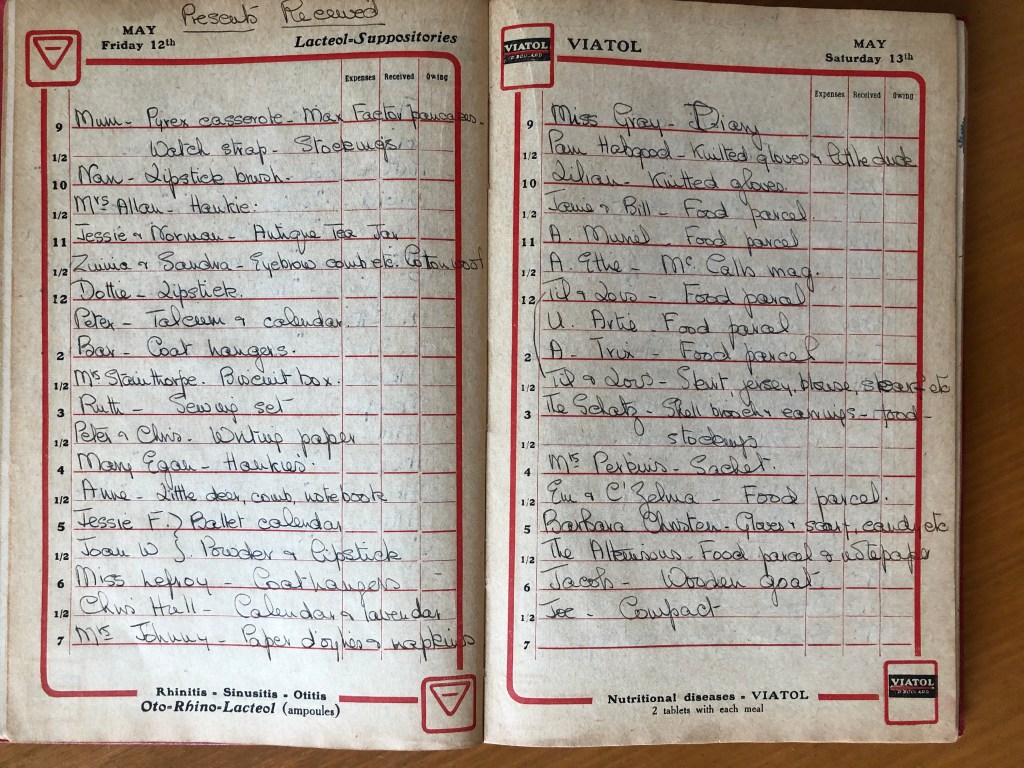 Presents Received
MAY
Friday 12th
Lacteol=Suppositories
Expenses Received Owing
9 Mum - Pyrex casserole - Max Factor pancakes -
1/2 Watch strap - Stockings
10 Nan - Lipstick brush.
1/2 Mrs Allan - Hankie.
11 Jessie & Norman - Antique Tea Jar
1/2 & Sandra - Eyebrow comb etc. Cotton wool
12 Dottie - Lipstick.
Peter - Talcum & calendar.
2 Bar - Coat hangers.
1/2 Mrs Stainthorpe. Biscuit box.
3 Ruth - Sewing set
1/2 Peter & Chris. Writing paper
4 Mary Egan - Hankies.
1/2 Anne - Little deer, comb, notebook
5 Jessie F. } Ballet calendar
1/2 Joan W }. Powder & Lipstick
6 Miss Lefroy - Coathangers
1/2 Chris Hall - Calendar & lavendar
7 Mrs Johnny - Paper d'oylies & napkins
Rhinitis - Sinusitis - Otitis
Oto=Rhino=Lacteol (ampoules)
VIATOL
VIATOL
MAY
Saturday 13th
Expenses Received Owing
9 Miss Gray - Diary
1/2 Pam Habgood - Knitted gloves & little duck
10 Lilian - Knitted gloves.
1/2 Jame & Bill - Food parcel.
11 A. Muriel - Food parcel
1/2 A. Ethe - Mc. Calls mag.
12 Til & Lois - Food parcel
U. Artie - Food parcel
2 A - Trix - Food parcel
1/2 Til & Lois - Skirt, jersey, blouse, scarf etc
3 The - Shell brooch & earrings - food -
1/2 stockings
4 Mrs Perkins - Sachet.
1/2 Em & C'Zelma - Food parcel.
5 Barbara Christen - Gloves & scarf, candy etc
1/2 The - Food parcel & notepaper
6 Jacob - Wooden goat
1/2 Joe - Compact
7
Nutritional diseases - VIATOL
2 tablets with each meal
VIATOL